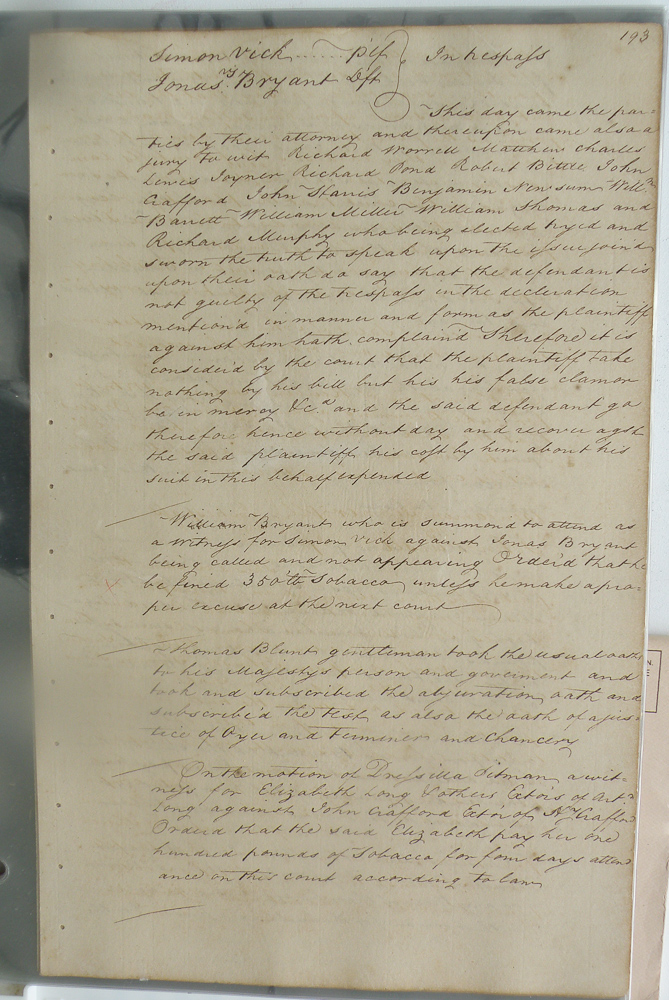 193
Simon Vick ..... Plf } In trespass
vs
Jonas Bryant Dft
This day came the par=
ties by their attorney and thereupon came also a
jury to wit Richard Worrell Matthew Charles
Lewis Joyner Richard Pond Robert Bittle John
Crafford John Benjamin Newsum Willm
Barrett William Miller William Thomas and
Richard Murphy who being elected tryed and
sworn the truth to speak upon the issue joined
upon their oath do say that the defendant is
not guilty of the trespass in the declaration
mention'd in manner and form as the plaintiff
against him hath complain'd Therefore it is
consider'd by the court that the plaintiff take
nothing by his bill but his his false clamor
be in mercy &c.a and the said defendant go
therefor hence without day and recover agst
the said plaintiff his cost by him about his
suit in this behalf expended
William Bryant who is summond to attend as
a Witness for Simon Vick against Jonas Bryant
being called and not appearing Order'd that he
be fined 350 lb Tobacco unless he make a pro=
per excuse at the next court
Thomas Blunt gentleman took the usual oaths
to his Majestys person and goverment and
took and subscribed the abjuration oath and
subscribe'd the test as also the oath of a jus=
tice of Oyer and Terminer and Chancery
On the motion of Drissilla Pitman a wit=
ness for Elizabeth Long & others Extors of Artr
Long against John Crafford Extor of Crafford
Orderd that the said Elizabeth pay her one
hundred pounds of Tobacco for four days attend
ance on this court according to law